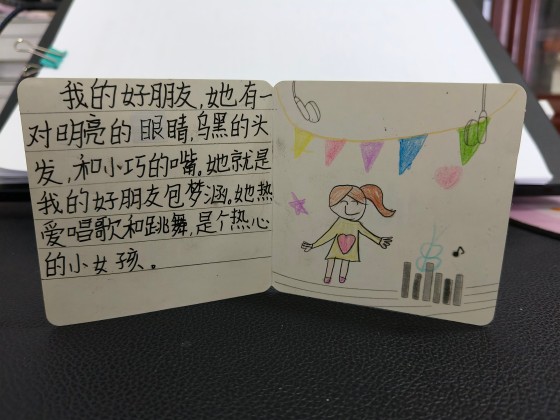 我的好朋友,她有一
对明亮的眼睛,乌黑的头
发,和小巧的嘴。她就是
我的好朋友包梦涵。她热
爱唱歌和跳舞,是个热心
的小女孩。